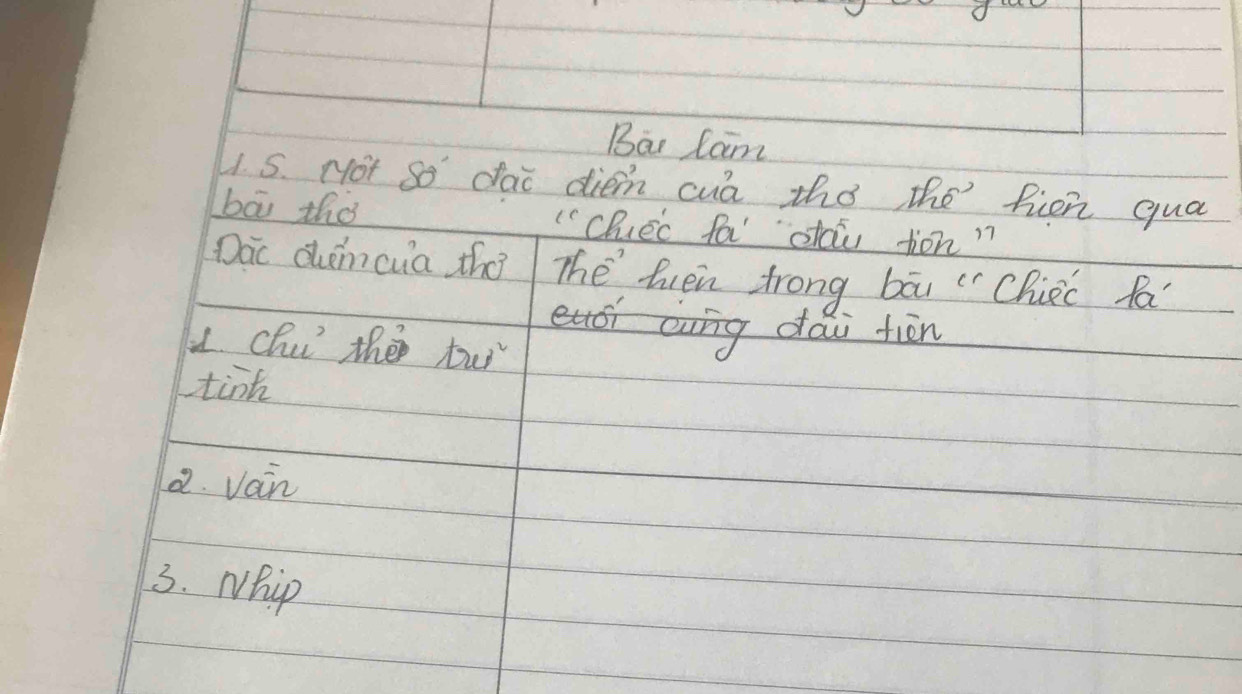 Bài làm
1.5. Một số đặc điểm của thơ thể hiện qua
bài thơ "Chiếc lá đầu tiên"
Đặc điểm của thơ
Thể hiện trong bài "Chiếc lá
cuối cùng đầu tiên
1. Chủ thể trữ
tình
2. Vần
3. Nhịp